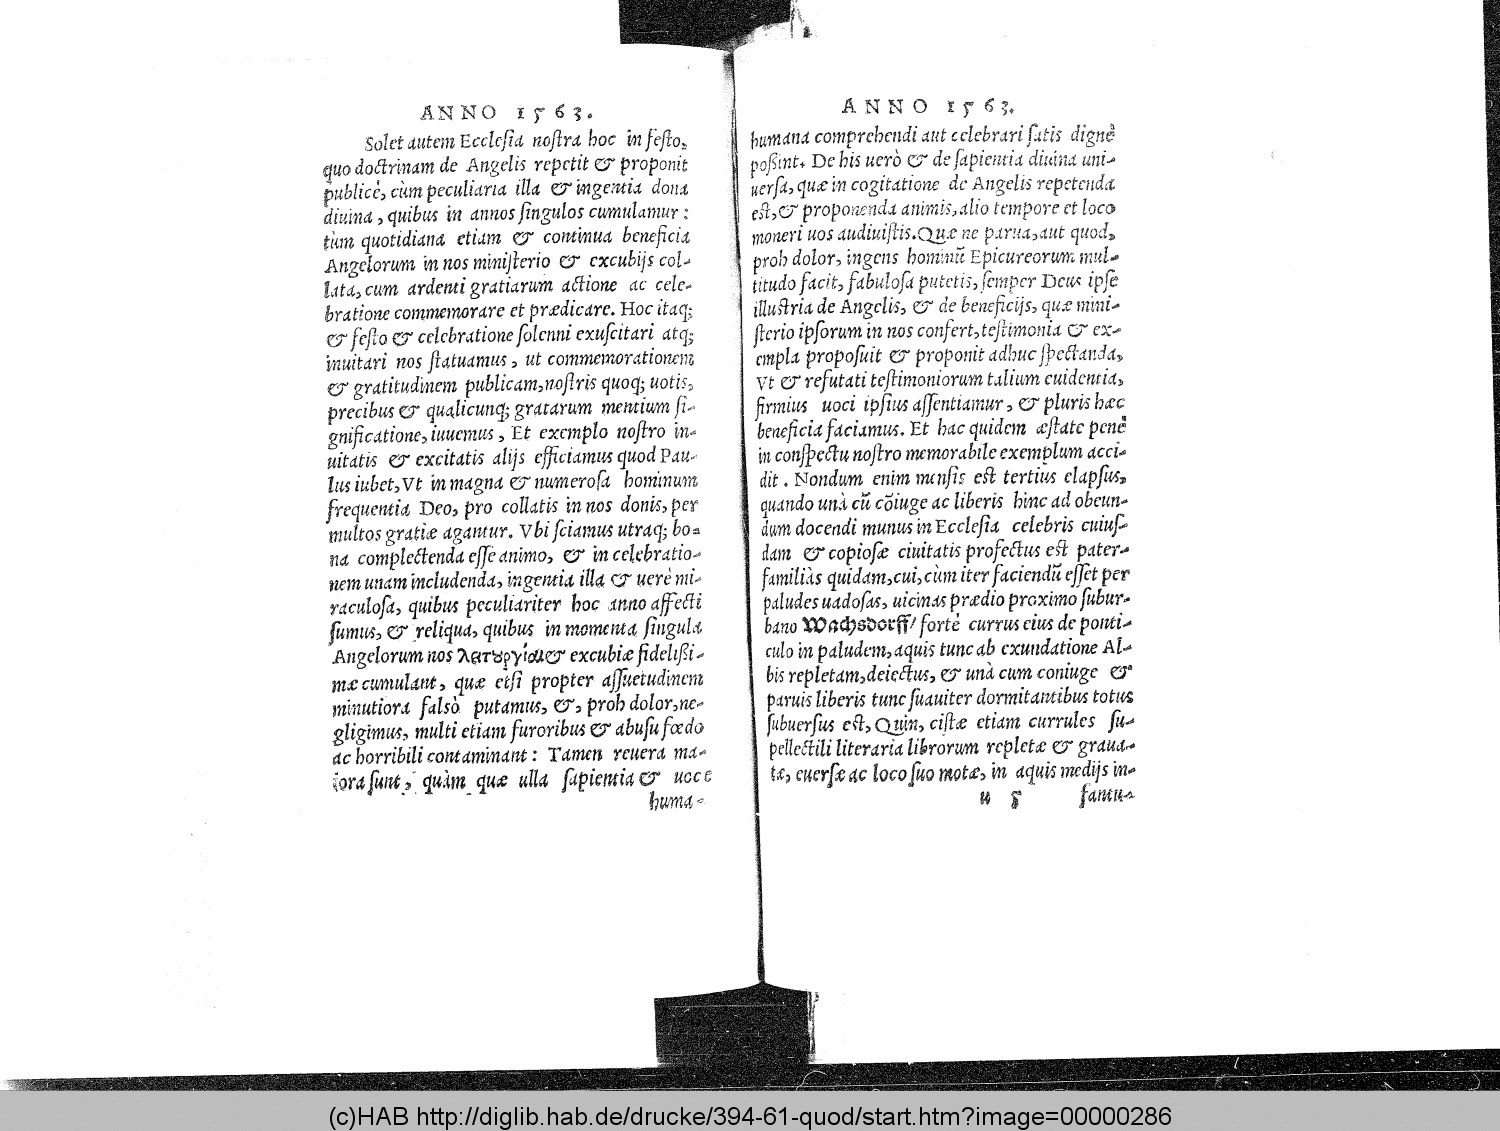 ANNO 1563.
Solet autem Ecclesia nostra hoc in festo,
quo doctrinam de Angelis repetit & proponit
publicè, cùm peculiaria illa & ingentia dona
diuina, quibus in annos singulos cumulamur:
tùm quotidiana etiam & continua beneficia
Angelorum in nos ministerio & excubijs col-
lata, cum ardenti gratiarum actione ac cele-
bratione commemorare et prædicare. Hoc itaq;
& festo & celebratione solenni exuscitari atq;
inuitari nos statuamus, ut commemorationem
& gratitudinem publicam, nostris quoq; uotis,
precibus & qualicunq; gratarum mentium si-
gnificatione, iuuemus, Et exemplo nostro in-
uitatis & excitatis alijs efficiamus quod Pau-
lus iubet, Vt in magna & numerosa hominum
frequentia Deo, pro collatis in nos donis, per
multos gratiæ agantur. Vbi sciamus utraq; bo-
na complectenda esse animo, & in celebratio-
nem unam includenda, ingentia illa & uerè mi-
raculosa, quibus peculiariter hoc anno affecti
sumus, & reliqua, quibus in momenta singula
Angelorum nos λειτουργίαι & excubiæ fidelißi-
mæ cumulant, quæ etsi propter assuetudinem
minutiora falsò putamus, &, proh dolor, ne-
gligimus, multi etiam furoribus & abusu fœdo
ac horribili contaminant: Tamen reuera ma-
iora sunt, quàm quæ ulla sapientia & uoce
huma-
ANNO 1563.
humana comprehendi aut celebrari satis dignè
poßint. De his uerò & de sapientia diuina uni-
uersa, quæ in cogitatione de Angelis repetenda
est, & proponenda animis, alio tempore et loco
moneri uos audiuistis. Quæ ne parua, aut quod,
proh dolor, ingens hominū Epicureorum mul-
titudo facit, fabulosa putetis, semper Deus ipse
illustria de Angelis, & de beneficijs, quæ mini-
sterio ipsorum in nos confert, testimonia & ex-
empla proposuit & proponit adhuc spectanda,
Vt & refutati testimoniorum talium euidentia,
firmius uoci ipsius assentiamur, & pluris hæc
beneficia faciamus. Et hac quidem æstate penè
in conspectu nostro memorabile exemplum acci-
dit. Nondum enim mensis est tertius elapsus,
quando unà cū cōiuge ac liberis hinc ad obeun-
dum docendi munus in Ecclesia celebris cuius-
dam & copiosæ ciuitatis profectus est pater-
familiàs quidam, cui, cùm iter faciendū esset per
paludes uadosas, uicinas prædio proximo subur-
bano Wachsdorff/ fortè currus eius de ponti-
culo in paludem, aquis tunc ab exundatione Al-
bis repletam, deiectus, & unà cum coniuge &
paruis liberis tunc suauiter dormitantibus totus
subuersus est, Quin, cistæ etiam currules su-
pellectili literaria librorum repletæ & graua-
tæ, euersæ ac loco suo motæ, in aquis medijs in-
u 5 fantu-
(c)HAB http://diglib.hab.de/drucke/394-61-quod/start.htm?image=00000286